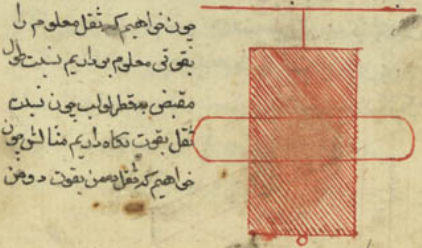 چون خواهیم که ثقل معلوم را
بقوتی معلوم برداریم نسبت طول
مقبض بقطر لولب چون نسبت
ثقل بقوت نگاه داریم مثالش چون
خواهیم که ثقل ده من بقوت دو من